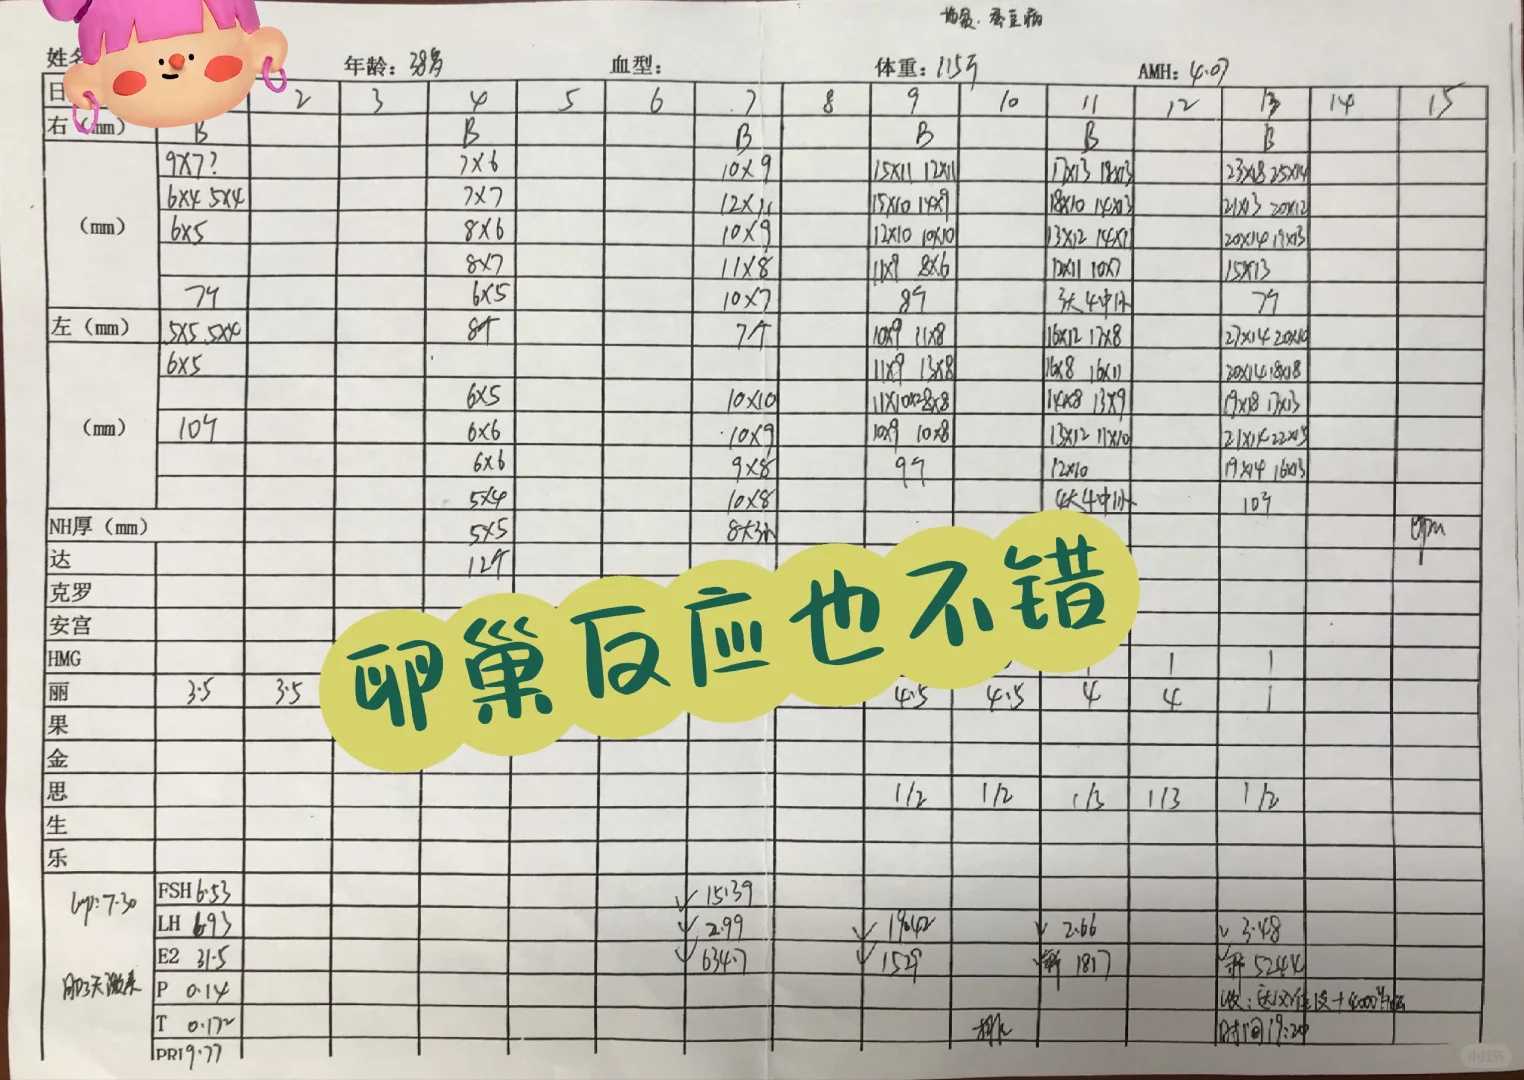 地贫.蚕豆病
年龄：38岁 血型： 体重：115斤 AMH：4.07
日 2 3 4 5 6 7 8 9 10 11 12 13 14 15
右（mm） B B B B B B
9X7? 7x6 10x9 15x11 12x11 17x13 18x13 23x18 25x14
6x4 5x4 7x7 15x10 14x9 18x10 14x13 21x13 20x12
（mm）
6x5 8x6 10x9 12x10 10x10 13x12 20x14 19x13
8x7 11x8 11x9 8x6 12x11 10x7 15x13
7个 6x5 10x7 8个 3大4中 7个
左（mm） 5x5 5x4 8个 7个 10x9 11x8 16x12 17x8 27x14
6x5 11x9 13x8 16x8 16x11 20x14 18x18
6x5 10x10 14x8 13x9 19x18 17x13
（mm） 10个 6x6 10x9 10x9 10x8 13x12 11x10 21x14
6x6 9x8 9个 12x10 19x14 16x13
5x4 10x8 4大4中 10个
NH厚（mm） 5x5
达 12个
克罗
安宫
HMG 1 1
丽 3.5 3.5 4.5 4.5 4 4 1
果
金
思 1/2 1/2 1/3 1/3 1/2
生
乐
卵巢反应也不错
7.30 FSH 6.53 15.39
LH 6.93 2.99 2.66 3.48
E2 31.5 634.7 1529 1817 5244
P 0.14
T 0.172 时间19:20
PRL 9.77